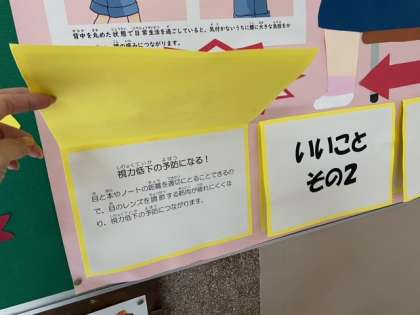 背中を丸めた状態で日常生活を過ごしていると、気付かないうちに腰に大きな負担をか
腰の痛みにつながります。
視力低下の予防になる！
目と本やノートの距離を適切にとることができるの
で、目のレンズを調節する筋肉が疲れにくくな
り、視力低下の予防につながります。
いいこと
その2